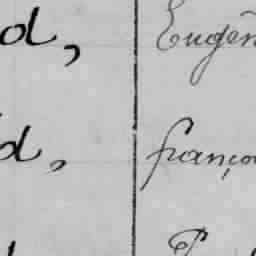 d, Eugèn
d, franço